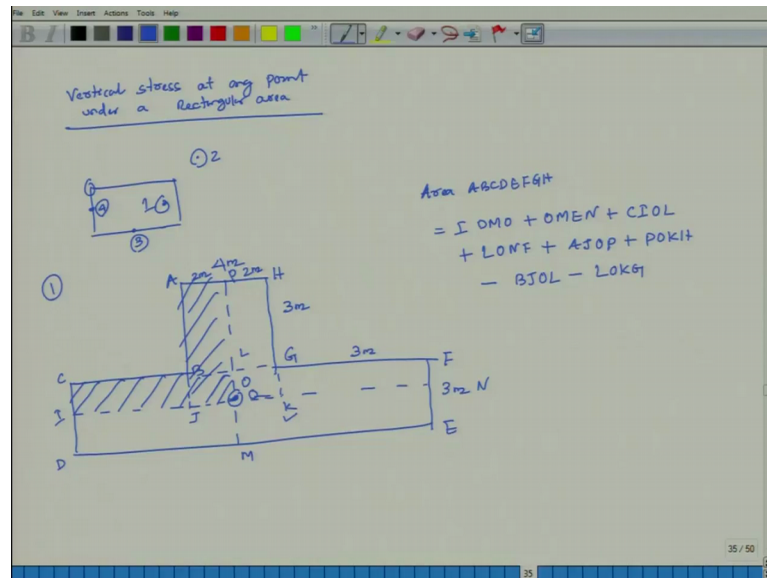 File Edit View Insert Actions Tools Help
B I
Vertical stress at any point
under a Rectangular area
2
1
4
3
Area ABCDEFGH
= I OMO + OMEN + CIOL
+ LONF + AJOP + POKH
- BJOL - LOKG
1
4m
A 2m P 2m H
3m
L G 3m F
C B
O
3m N
I J K
E
D M
35 / 50
35